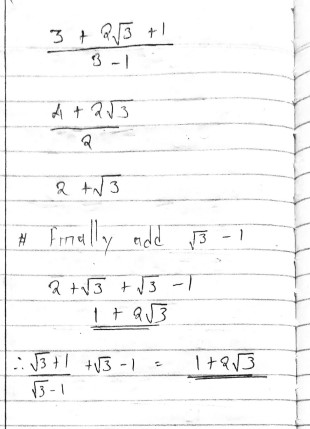 3 + 2√3 + 1
3 - 1
4 + 2√3
2
2 + √3
# Finally add √3 - 1
2 + √3 + √3 - 1
1 + 2√3
∴ √3 + 1 + √3 - 1 = 1 + 2√3
√3 - 1